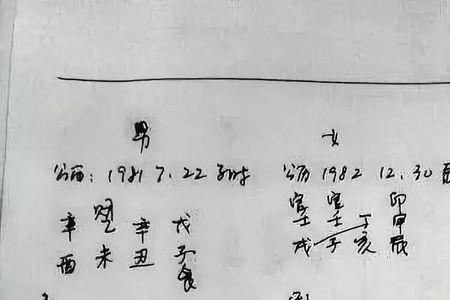 男
公历: 1981 7.22 子时
辛 辛 戊
酉 未 丑 子
食
女
公历 1982 12.30
官 官 印
壬 壬 丁 甲
戌 子 亥 辰